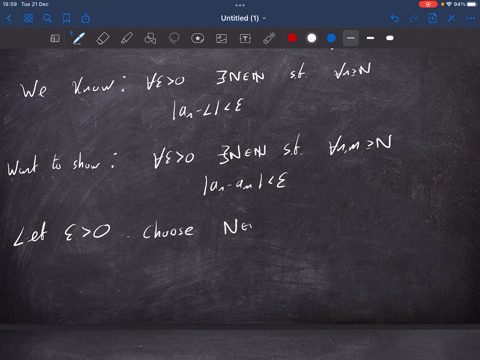 19:59 Tue 21 Dec
94%
Untitled (1)
We know: ∀ε>0 ∃N∈ℕ st ∀n≥N
|aₙ-L|<ε
Want to show: ∀ε>0 ∃N∈ℕ s.t. ∀n,m≥N
|aₙ-aₘ|<ε
Let ε>0. choose N∈